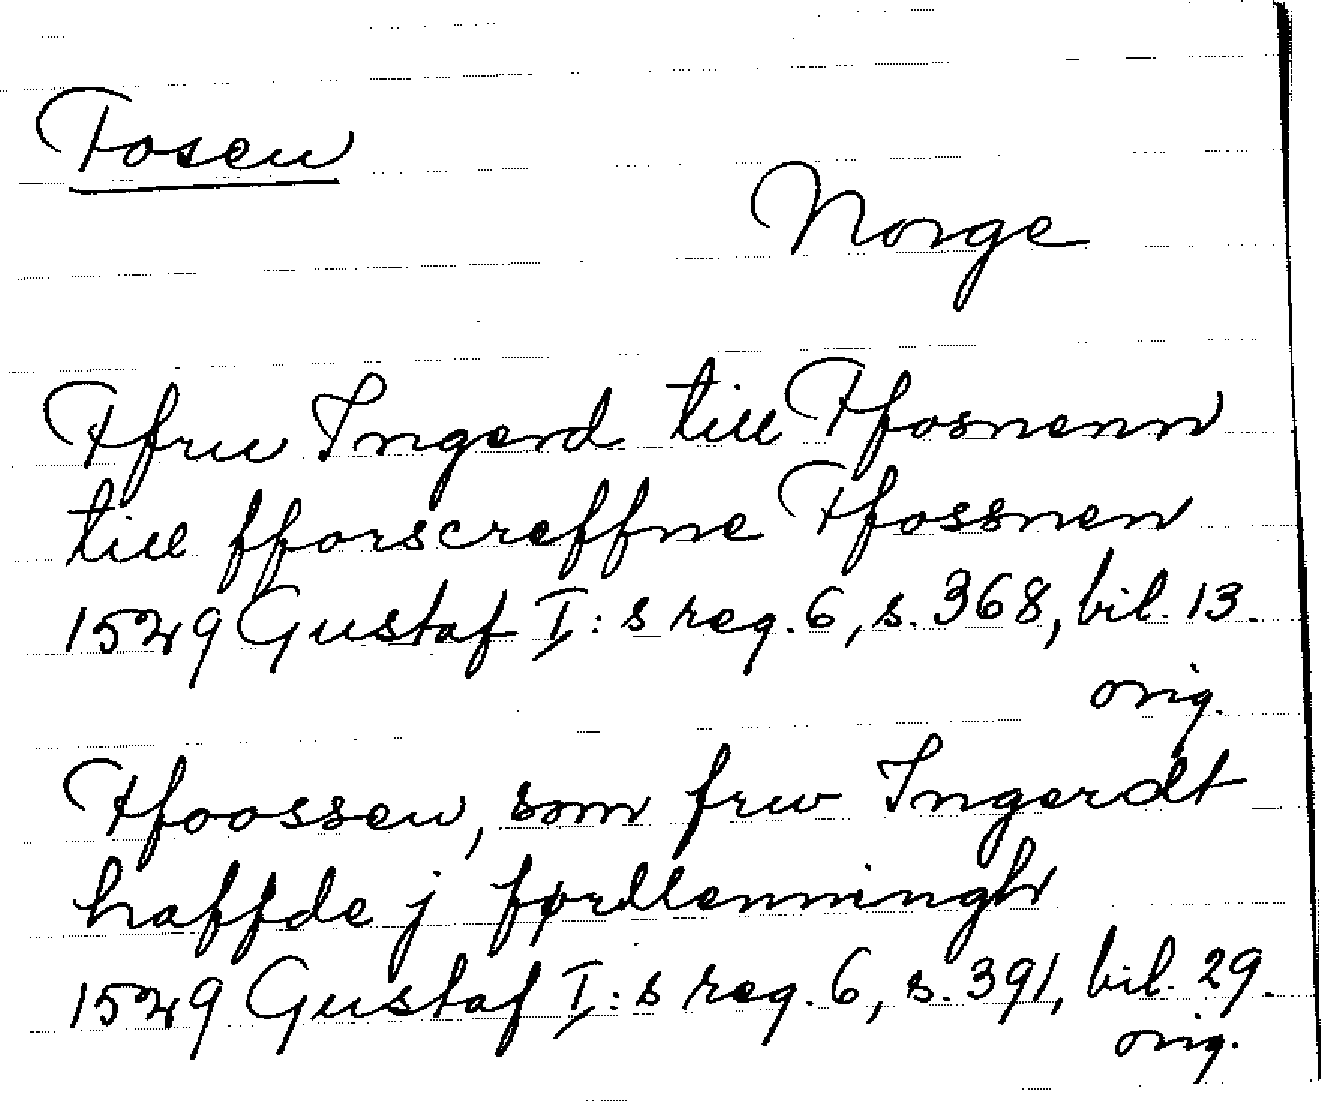 Fosen
Norge
Ffru Ingerd till Ffosnenn
till fforscreffne Ffossnen
1529 Gustaf I:s reg. 6, s. 368, bil. 13.
orig.
Ffoossen, som frw Ingerdt
haffde j førdlenningh
1529 Gustaf I:s reg. 6, s. 391, bil. 29.
orig.